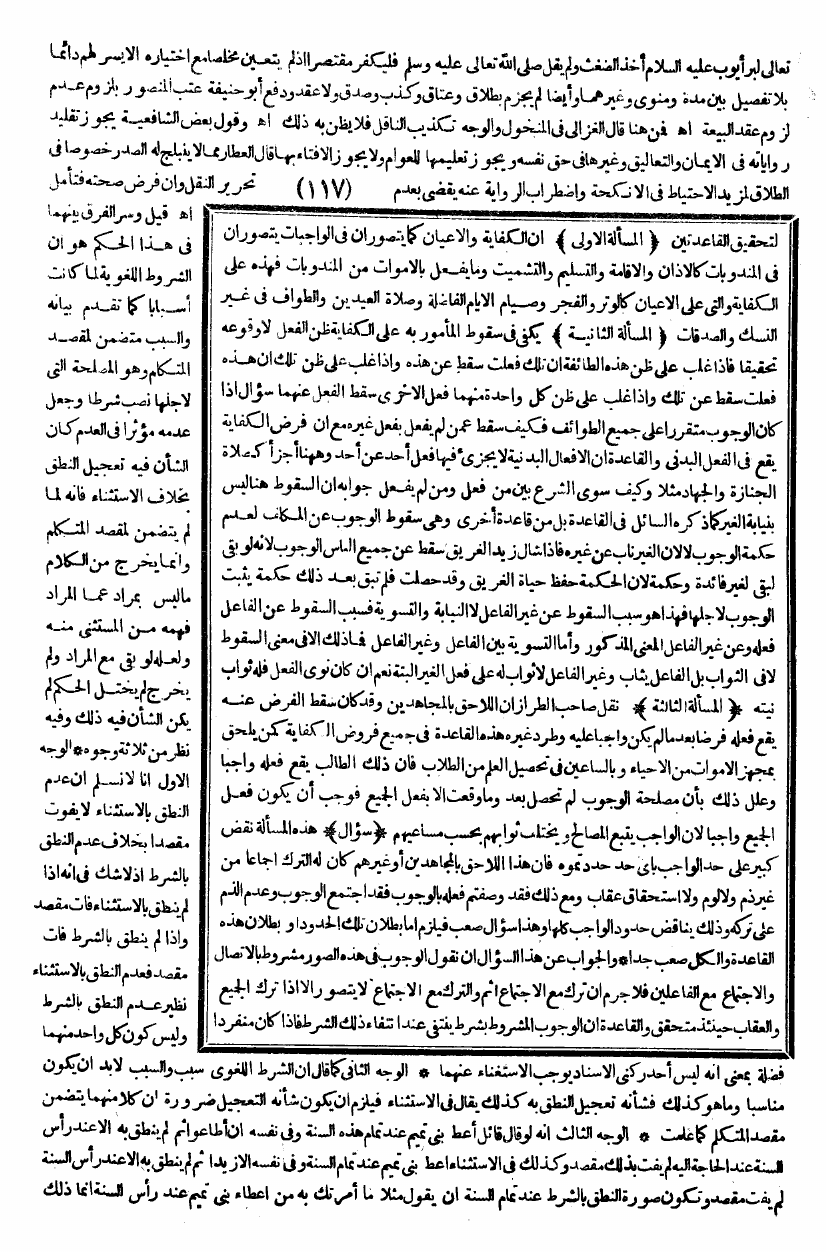 تعالى لبر أيوب عليه السلام أخذ الضغث ولم يقل صلى الله تعالى عليه وسلم فليكفر مقتصرا اذ لم يتعين مخلصا مع اختياره الايسر لهم دائما
بلا تفصيل بين مدة ومنوى وغيرهما وأيضا لم يجزم بطلاق وعتاق وكذب وصدق ولا عقد ودفع أبو حنيفة عتب المنصور بلزوم عدم
لزوم عقد البيعة اه فمن هنا قال الغزالى فى المنخول والوجه تكذيب الناقل فلا يظن به ذلك اه وقول بعض الشافعية يجوز تقليد
رواياته فى الايمان والتعاليق وغيرها فى حق نفسه ويجوز تعليمها للعوام ولا يجوز الافتاء بها قال العطار مما لا ينثلج له الصدر خصوصا فى
الطلاق لمزيد الاحتياط فى الانكحة واضطراب الرواية عنه يقضى بعدم (١١٧) تحرير النقل وان فرض صحته فتأمل
اه قيل وسر الفرق بينهما
فى هذا الحكم هو ان
الشروط اللغوية لما كانت
أسبابا كما تقدم بيانه
والسبب متضمن لمقصد
المتكلم وهو المصلحة التى
لاجلها نصب شرطا وجعل
عدمه مؤثرا فى العدم كان
الشأن فيه تعجيل النطق
بخلاف الاستثناء فانه لما
لم يتضمن لمقصد المتكلم
وانما يخرج من الكلام
ما ليس بمراد عما المراد
فهمه من المستثنى منه
ولعله لو بقى مع المراد ولم
يخرج لم يختل الحكم لم
يكن الشأن فيه ذلك وفيه
نظر من ثلاثة وجوه * الوجه
الاول انا لا نسلم ان عدم
النطق بالاستثناء لا يفوت
مقصدا بخلاف عدم النطق
بالشرط اذ لا شك فى انه اذا
لم ينطق بالاستثناء فات مقصد
واذا لم ينطق بالشرط فات
مقصد فعدم النطق بالاستثناء
نظير عدم النطق بالشرط
وليس كون كل واحد منهما
لتحقيق القاعدتين ﴿ المسألة الاولى ﴾ ان الكفاية والاعيان كما يتصوران فى الواجبات يتصوران
فى المندوبات كالاذان والاقامة والتسليم والتشميت وما يفعل بالاموات من المندوبات فهذه على
الكفاية والتى على الاعيان كالوتر والفجر وصيام الايام الفاضلة وصلاة العيدين والطواف فى غير
النسك والصدقات ﴿ المسألة الثانية ﴾ يكفى فى سقوط المأمور به على الكفاية ظن الفعل لا وقوعه
تحقيقا فاذا غلب على ظن هذه الطائفة ان تلك فعلت سقط عن هذه واذا غلب على ظن تلك ان هذه
فعلت سقط عن تلك واذا غلب على ظن كل واحدة منهما فعل الاخرى سقط الفعل عنهما سؤال اذا
كان الوجوب متقررا على جميع الطوائف فكيف سقط عمن لم يفعل بفعل غيره مع ان فرض الكفاية
يقع فى الفعل البدنى والقاعدة ان الافعال البدنية لا يجزى فيها فعل أحد عن أحد وههنا أجزأ كصلاة
الجنازة والجهاد مثلا وكيف سوى الشرع بين من فعل ومن لم يفعل جوابه ان السقوط هنا ليس
بنيابة الغير كما ذكره السائل فى القاعدة بل من قاعدة أخرى وهى سقوط الوجوب عن المكلف لعدم
حكمة الوجوب لا لان الغير ناب عن غيره فاذا شال زيد الغريق سقط عن جميع الناس الوجوب لانه لو بقى
لبقى لغير فائدة وحكمة لان الحكمة حفظ حياة الغريق وقد حصلت فلم تبق بعد ذلك حكمة يثبت
الوجوب لاجلها فهذا هو سبب السقوط عن غير الفاعل لا النيابة والتسوية فسبب السقوط عن الفاعل
فعله وعن غير الفاعل المعنى المذكور وأما التسوية بين الفاعل وغير الفاعل فماذلك الا فى معنى السقوط
لا فى الثواب بل الفاعل يثاب وغير الفاعل لا ثواب له على فعل الغير البتة نعم ان كان نوى الفعل فله ثواب
نيته ﴿ المسألة الثالثة ﴾ نقل صاحب الطراز ان اللاحق بالمجاهدين وقد كان سقط الفرض عنه
يقع فعله فرضا بعد ما لم يكن واجبا عليه وطرد غيره هذه القاعدة فى جميع فروض الكفاية كمن يلحق
بمجهز الاموات من الاحياء وبالساعين فى تحصيل العلم من الطلاب فان ذلك الطالب يقع فعله واجبا
وعلل ذلك بأن مصلحة الوجوب لم تحصل بعد وما وقعت الا بفعل الجميع فوجب أن يكون فعل
الجميع واجبا لان الواجب يتبع المصالح ويختلف ثوابهم بحسب مساعيهم ﴿ سؤال ﴾ هذه المسألة نقض
كبير على حد الواجب باى حد حددتموه فان هذا اللاحق بالمجاهدين أو غيرهم كان له الترك اجماعا من
غير ذم ولا لوم ولا استحقاق عقاب ومع ذلك فقد وصفتم فعله بالوجوب فقد اجتمع الوجوب وعدم الذم
على تركه وذلك يناقض حدود الواجب كلها وهذا سؤال صعب فيلزم اما بطلان تلك الحدود او بطلان هذه
القاعدة والكل صعب جدا * والجواب عن هذا السؤال ان نقول الوجوب فى هذه الصور مشروط بالاتصال
والاجتماع مع الفاعلين فلا جرم ان ترك مع الاجتماع اثم والترك مع الاجتماع لا يتصور الا اذا ترك الجميع
والعقاب حينئذ متحقق والقاعدة ان الوجوب المشروط بشرط ينتفى عند انتفاء ذلك الشرط فاذا كان منفردا
فضلة بمعنى انه ليس أحد ركنى الاسناد يوجب الاستغناء عنهما * الوجه الثانى كما قال ان الشرط اللغوى سبب والسبب لابد ان يكون
مناسبا وما هو كذلك فشأنه تعجيل النطق به كذلك يقال فى الاستثناء فيلزم ان يكون شأنه التعجيل ضرورة ان كلا منهما يتضمن
مقصد المتكلم كما علمت * الوجه الثالث انه لو قال قائل أعط بنى تميم عند تمام هذه السنة وفى نفسه ان أطاعوا ثم لم ينطق به الا عند رأس
السنة عند الحاجة اليه لم يفت بذلك مقصد وكذلك فى الاستثناء اعط بنى تميم عند تمام السنة وفى نفسه الا زيدا ثم لم ينطق به الا عند رأس السنة
لم يفت مقصد وتكون صورة النطق بالشرط عند تمام السنة ان يقول مثلا ما أمرتك به من اعطاء بنى تميم عند رأس السنة انما ذلك